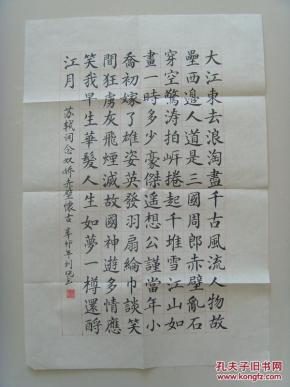 大江東去浪淘盡千古風流人物故
壘西邊人道是三國周郎赤壁亂石
穿空驚涛拍岍捲起千堆雪江山如
畫一時多少豪傑遥想公謹當年小
喬初嫁了雄姿英發羽扇綸巾談笑
間狂虜灰飛煙滅故國神遊多情應
笑我早生華髮人生如夢一樽還酹
江月
苏轼词念奴娇赤壁怀古 辛卯年刘